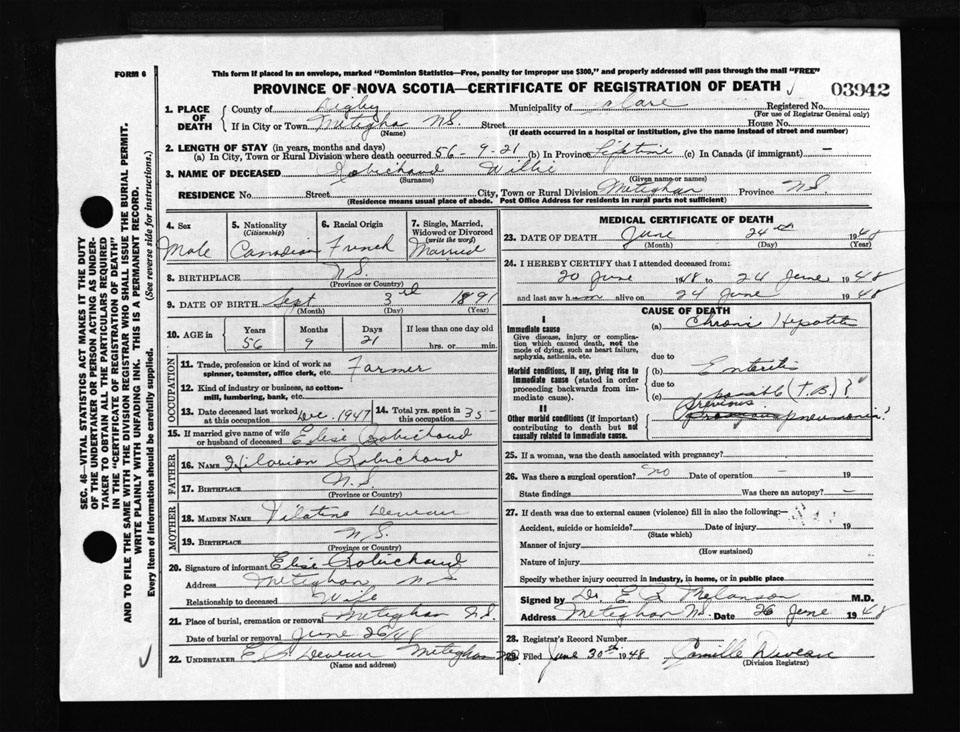 FORM 6
This form if placed in an envelope, marked "Dominion Statistics—Free, penalty for improper use $300," and properly addressed will pass through the mail "FREE"
PROVINCE OF NOVA SCOTIA—CERTIFICATE OF REGISTRATION OF DEATH
03942
1. PLACE OF DEATH County of Digby Municipality of Clare Registered No.
(For use of Registrar General only)
If in City or Town Meteghan N.S. Street House No.
(Name) (If death occurred in a hospital or institution, give the name instead of street and number)
2. LENGTH OF STAY (in years, months and days)
(a) In City, Town or Rural Division where death occurred 56-9-21 (b) In Province Lifetime (c) In Canada (if immigrant) —
3. NAME OF DECEASED Robichaud Willie
(Surname) (Given name or names)
RESIDENCE No. Street City, Town or Rural Division Meteghan Province N.S.
(Residence means usual place of abode. Post Office Address for residents in rural parts not sufficient)
4. Sex Male
5. Nationality (Citizenship) Canadian
6. Racial Origin French
7. Single, Married, Widowed or Divorced (write the word) Married
8. BIRTHPLACE N.S.
(Province or Country)
9. DATE OF BIRTH Sept 3rd 1891
(Month) (Day) (Year)
10. AGE in Years Months Days If less than one day old
56 9 21 hrs. or min.
OCCUPATION
11. Trade, profession or kind of work as spinner, teamster, office clerk, etc. Farmer
12. Kind of industry or business, as cotton-mill, lumbering, bank, etc.
13. Date deceased last worked at this occupation Dec. 1947
14. Total yrs. spent in this occupation 35
15. If married give name of wife or husband of deceased Elise Robichaud
FATHER
16. NAME Hilarion Robichaud
17. BIRTHPLACE N.S.
(Province or Country)
MOTHER
18. MAIDEN NAME Deveau
19. BIRTHPLACE N.S.
(Province or Country)
20. Signature of informant Elise Robichaud
Address Meteghan N.S.
Relationship to deceased Wife
21. Place of burial, cremation or removal Meteghan N.S.
Date of burial or removal June 26/48
22. UNDERTAKER Deveau Meteghan N.S.
(Name and address)
MEDICAL CERTIFICATE OF DEATH
23. DATE OF DEATH June 24th 1948
(Month) (Day) (Year)
24. I HEREBY CERTIFY that I attended deceased from:
20 June 1948 to 24 June 1948
and last saw him alive on 24 June 1948
CAUSE OF DEATH
I
Immediate cause
Give disease, injury or complication which caused death, not the mode of dying, such as heart failure, asphyxia, asthenia, etc.
(a) Chronic Hepatitis
due to
Morbid conditions, if any, giving rise to immediate cause (stated in order proceeding backwards from immediate cause).
(b) Enteritis
due to
(c) possible (T.B.)?
II
Other morbid conditions (if important) contributing to death but not causally related to immediate cause.
Previous pneumonia?
25. If a woman, was the death associated with pregnancy?
26. Was there a surgical operation? no Date of operation — 19
State findings Was there an autopsy? —
27. If death was due to external causes (violence) fill in also the following:—
Accident, suicide or homicide? Date of injury 19
(State which)
Manner of injury
(How sustained)
Nature of injury
Specify whether injury occurred in industry, in home, or in public place
Signed by Dr. E. Melanson M.D.
Address Meteghan N.S. Date 26 June 1948
28. Registrar's Record Number
29. Filed June 30th 1948 Camille Deveau
(Division Registrar)
SEC. 46—VITAL STATISTICS ACT MAKES IT THE DUTY
OF THE UNDERTAKER OR PERSON ACTING AS UNDER-
TAKER TO OBTAIN ALL THE PARTICULARS REQUIRED
IN THE "CERTIFICATE OF REGISTRATION OF DEATH"
AND TO FILE THE SAME WITH THE DIVISION REGISTRAR WHO SHALL ISSUE THE BURIAL PERMIT.
WRITE PLAINLY WITH UNFADING INK. THIS IS A PERMANENT RECORD.
Every item of information should be carefully supplied. (See reverse side for instructions.)